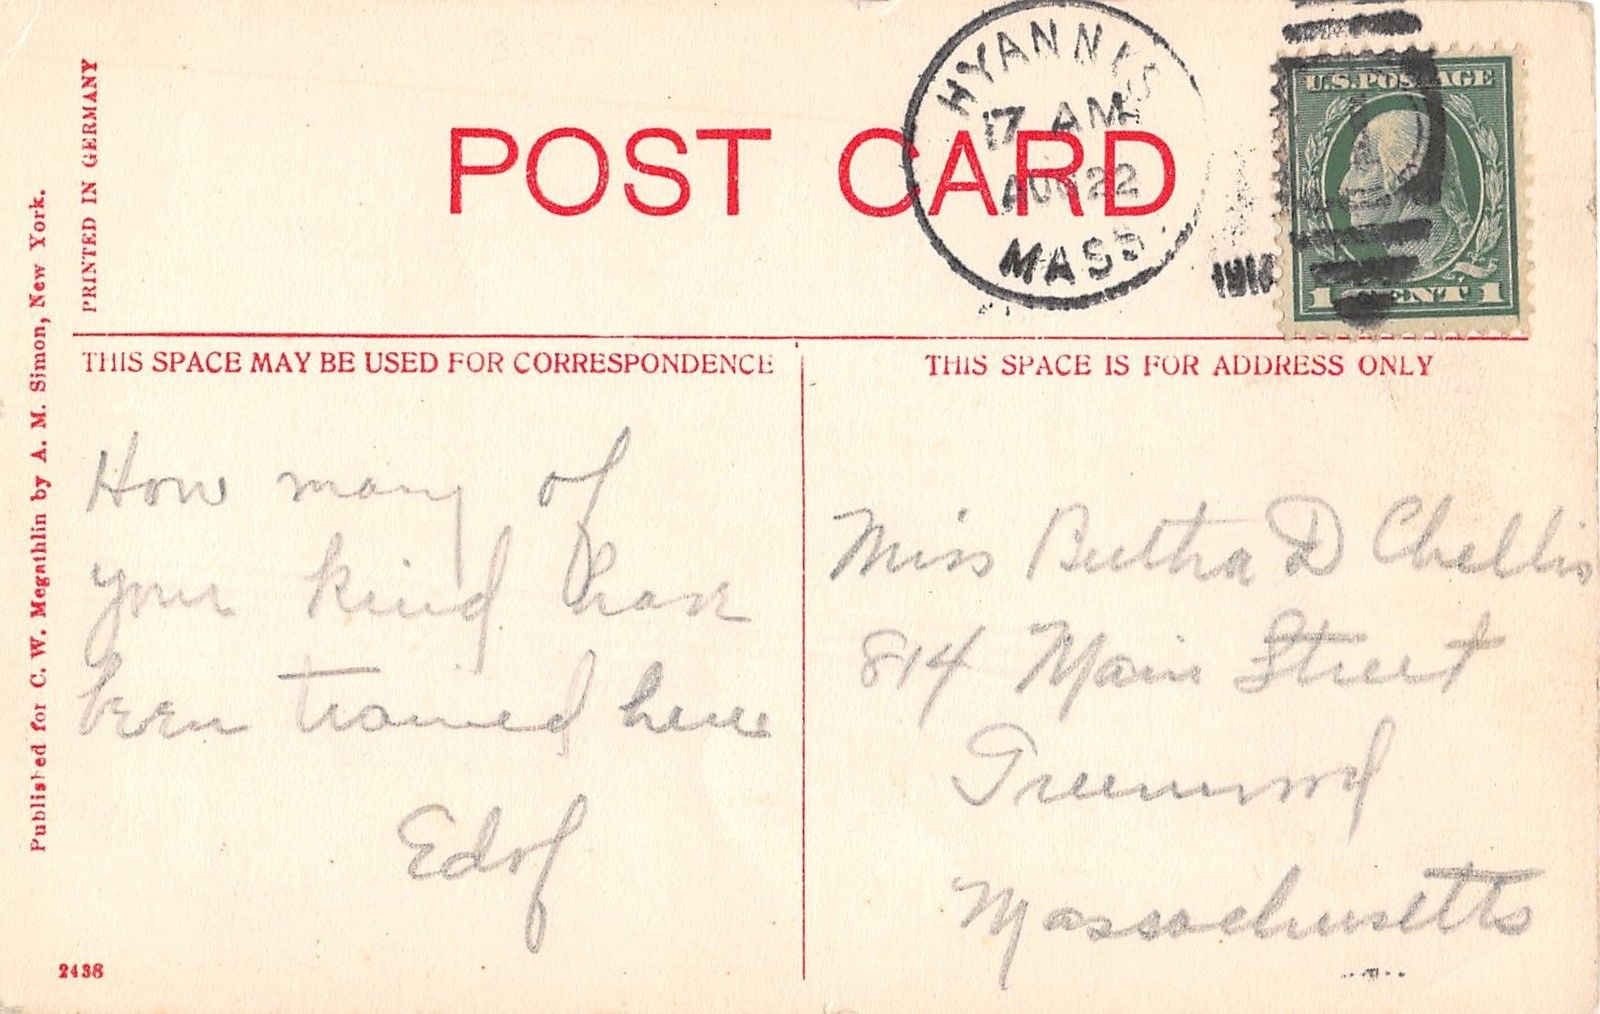 HYANNIS
17 AM
AUG 22
MASS.
1916
U.S. POSTAGE
1 CENT 1
POST CARD
PRINTED IN GERMANY
Published for C. W. Megathlin by A. M. Simon, New York.
THIS SPACE MAY BE USED FOR CORRESPONDENCE
How many of
your kind have
been trained here
2438
THIS SPACE IS FOR ADDRESS ONLY
Miss Bertha D Chellis
814 Main Street
Greenwood
Massachusetts